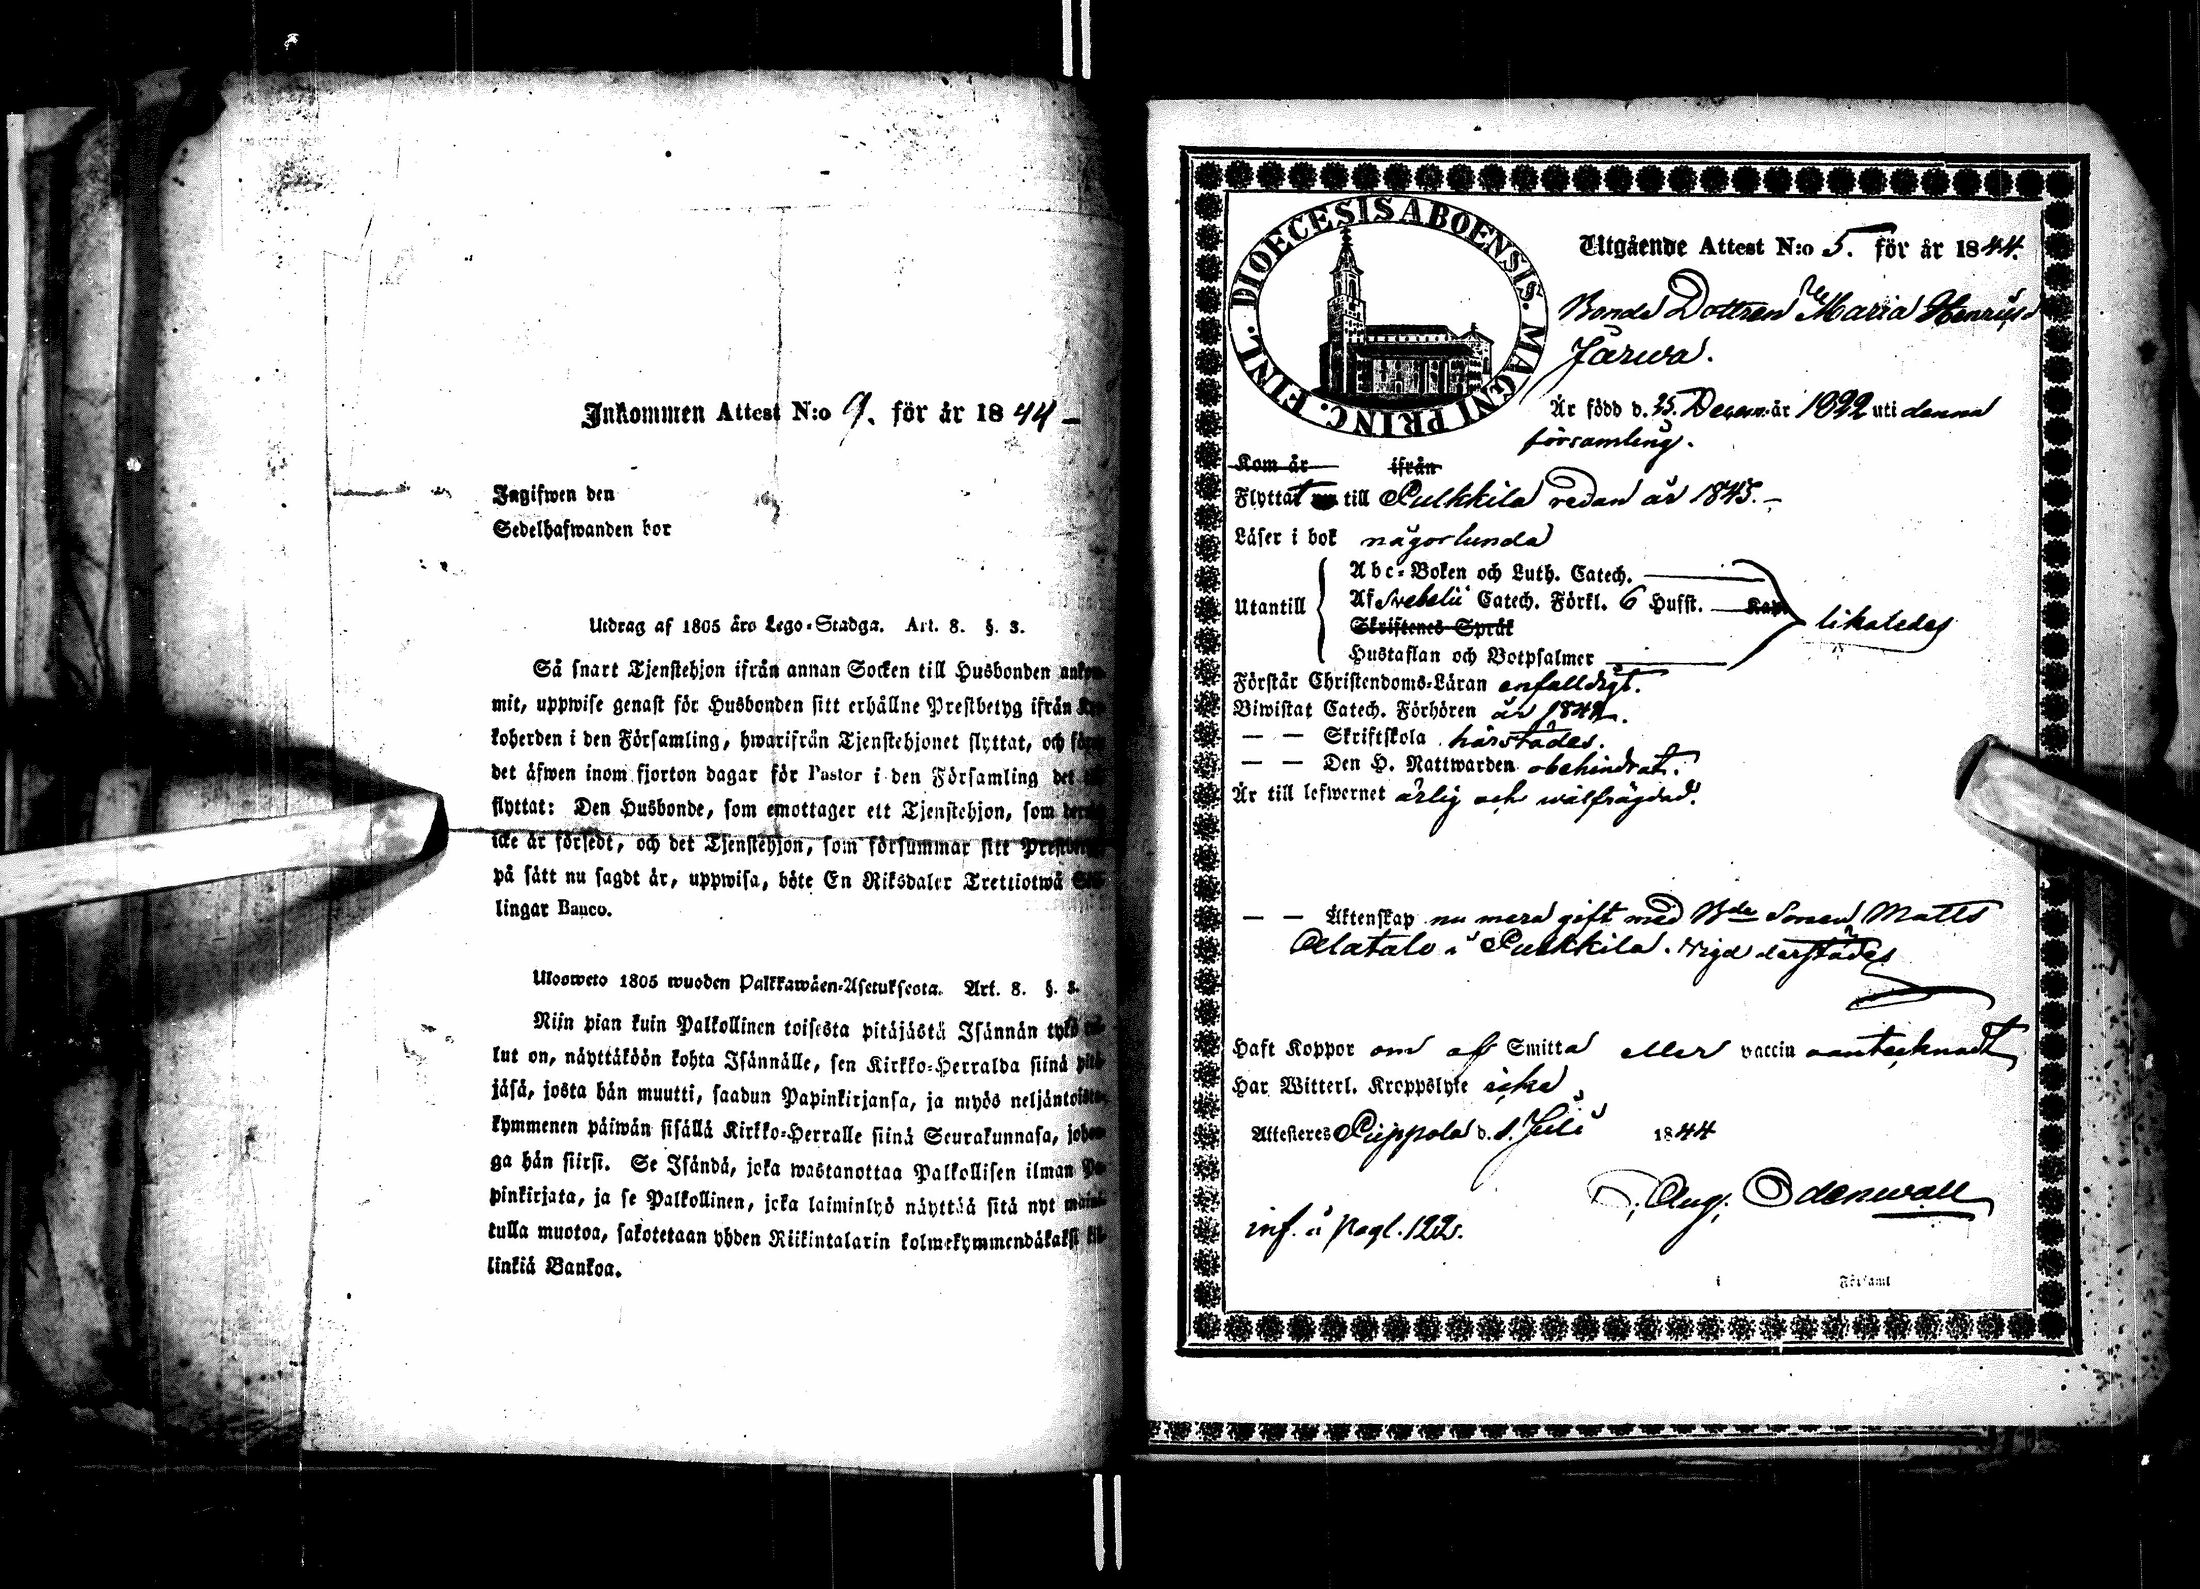 Inkommen Attest N:o 9. för år 1844 –
Ingifwen den
Sedelhafwanden bor
Utdrag af 1805 års Lego-Stadga. Art. 8. §. 3.
Så snart Tjenstehjon ifrån annan Socken till Husbonden ankom-
mit, uppwise genast för Husbonden sitt erhållne Prestbetyg ifrån Kyr-
koherden i den Församling, hwarifrån Tjenstehjonet flyttat, och före
det äfwen inom fjorton dagar för Pastor i den Församling det
flyttat: Den Husbonde, som emottager ett Tjenstehjon, som
icke är försedt, och det Tjenstehjon, som försummar sitt Prestbetyg
på sätt nu sagdt är, uppwisa, böte En Riksdaler Trettiotwå
lingar Banco.
Ulosweto 1805 wuoden Palkkawäen-Asetuksesta. Art. 8. §. 3.
Niin pian kuin Palkollinen toisesta pitäjästä Isännän tykö
lut on, näyttäköön kohta Isännälle, sen Kirkko-Herralda siinä pitä-
jäsä, josta hän muutti, saadun Papinkirjansa, ja myös neljäntoista-
kymmenen päiwän sisällä Kirkko-Herralle siinä Seurakunnasa, johon-
ga hän siirsi. Se Isändä, joka wastanottaa Palkollisen ilman Pa-
pinkirjata, ja se Palkollinen, joka laiminlyö näyttää sitä nyt
tulla muotoa, sakotetaan yhden Riikintalarin kolmekymmendäkaksi kil-
linkiä Bankoa.
DIOECESIS ABOENSIS. MAGNI PRINC. FINL.
Utgående Attest N:o 5. för år 1844.
Bonde Dottren Maria Henrics
Järwa.
Är född d. 25. Decem. år 1822 uti denna
församling.
Kom år ifrån
Flyttat till Pulkkila redan år 1843. –
Läser i bok någorlunda
Utantill
Abc-Boken och Luth. Catech.
Af Svebelii Catech. Förkl. 6 Hufst. Kap.
Skriftenes Språk
Hustaflan och Botpsalmer
likaledes
Förstår Christendoms-Läran enfalldigt.
Biwistat Catech. Förhören år 1842.
— — Skriftskola härstädes.
— — Den H. Nattwarden obehindrat.
Är till lefwernet ärlig och wälfrägdad.
— — Äktenskap nu mera gift med Bde Sonen Matts
Alatalo i Pulkkila. Wigd derstädes
Haft Koppor om af Smitta eller vaccin oantecknadt
Har Witterl. Kroppslyte icke
Attesteres Pippola d. 1. Juli 1844
Aug. Odenwall
inf. å pagl. 122.
i Församl